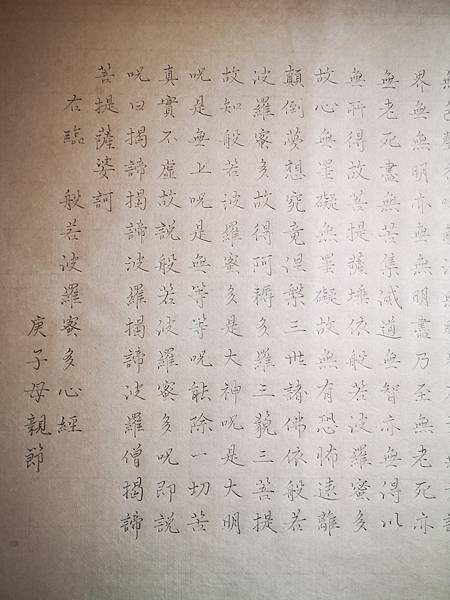 界無無明亦無無明盡乃至無老死亦
無老死盡無苦集滅道無智亦無得以
無所得故菩提薩埵依般若波羅蜜多
故心無罣礙無罣礙故無有恐怖遠離
顛倒夢想究竟涅槃三世諸佛依般若
波羅蜜多故得阿耨多羅三藐三菩提
故知般若波羅蜜多是大神呪是大明
呪是無上呪是無等等呪能除一切苦
真實不虛故說般若波羅蜜多呪即說
呪曰揭諦揭諦波羅揭諦波羅僧揭諦
菩提薩婆訶
右臨 般若波羅蜜多心經
庚子母親節